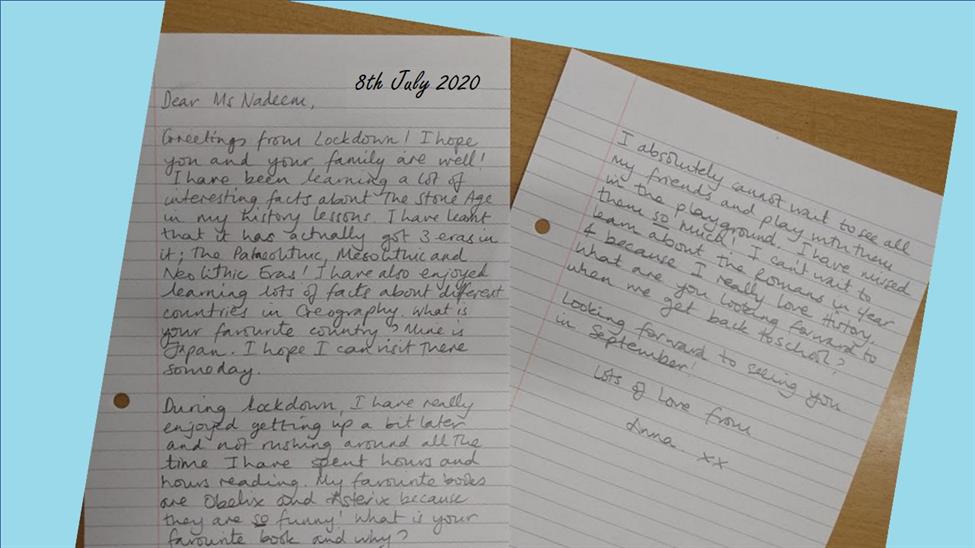 8th July 2020
Dear Ms Nadeem,
Greetings from Lockdown! I hope
you and your family are well!
I have been learning a lot of
interesting facts about The Stone Age
in my history lessons. I have learnt
that it has actually got 3 eras in
it; The Palaeolithic, Mesolithic and
Neolithic Eras! I have also enjoyed
learning lots of facts about different
countries in Geography. What is
your favourite country? Mine is
Japan. I hope I can visit there
someday.
During lockdown, I have really
enjoyed getting up a bit later
and not rushing around all the
time I have spent hours and
hours reading. My favourite books
are Obelix and Asterix because
they are so funny! What is your
favourite book and why?
I absolutely cannot wait to see all
my friends and play with them
in the playground. I have missed
them so much! I can't wait to
learn about the Romans in Year
4 because I really love History.
What are you looking forward to
when we get back to school?
Looking forward to seeing you
in September!
Lots of love from
Anna xx